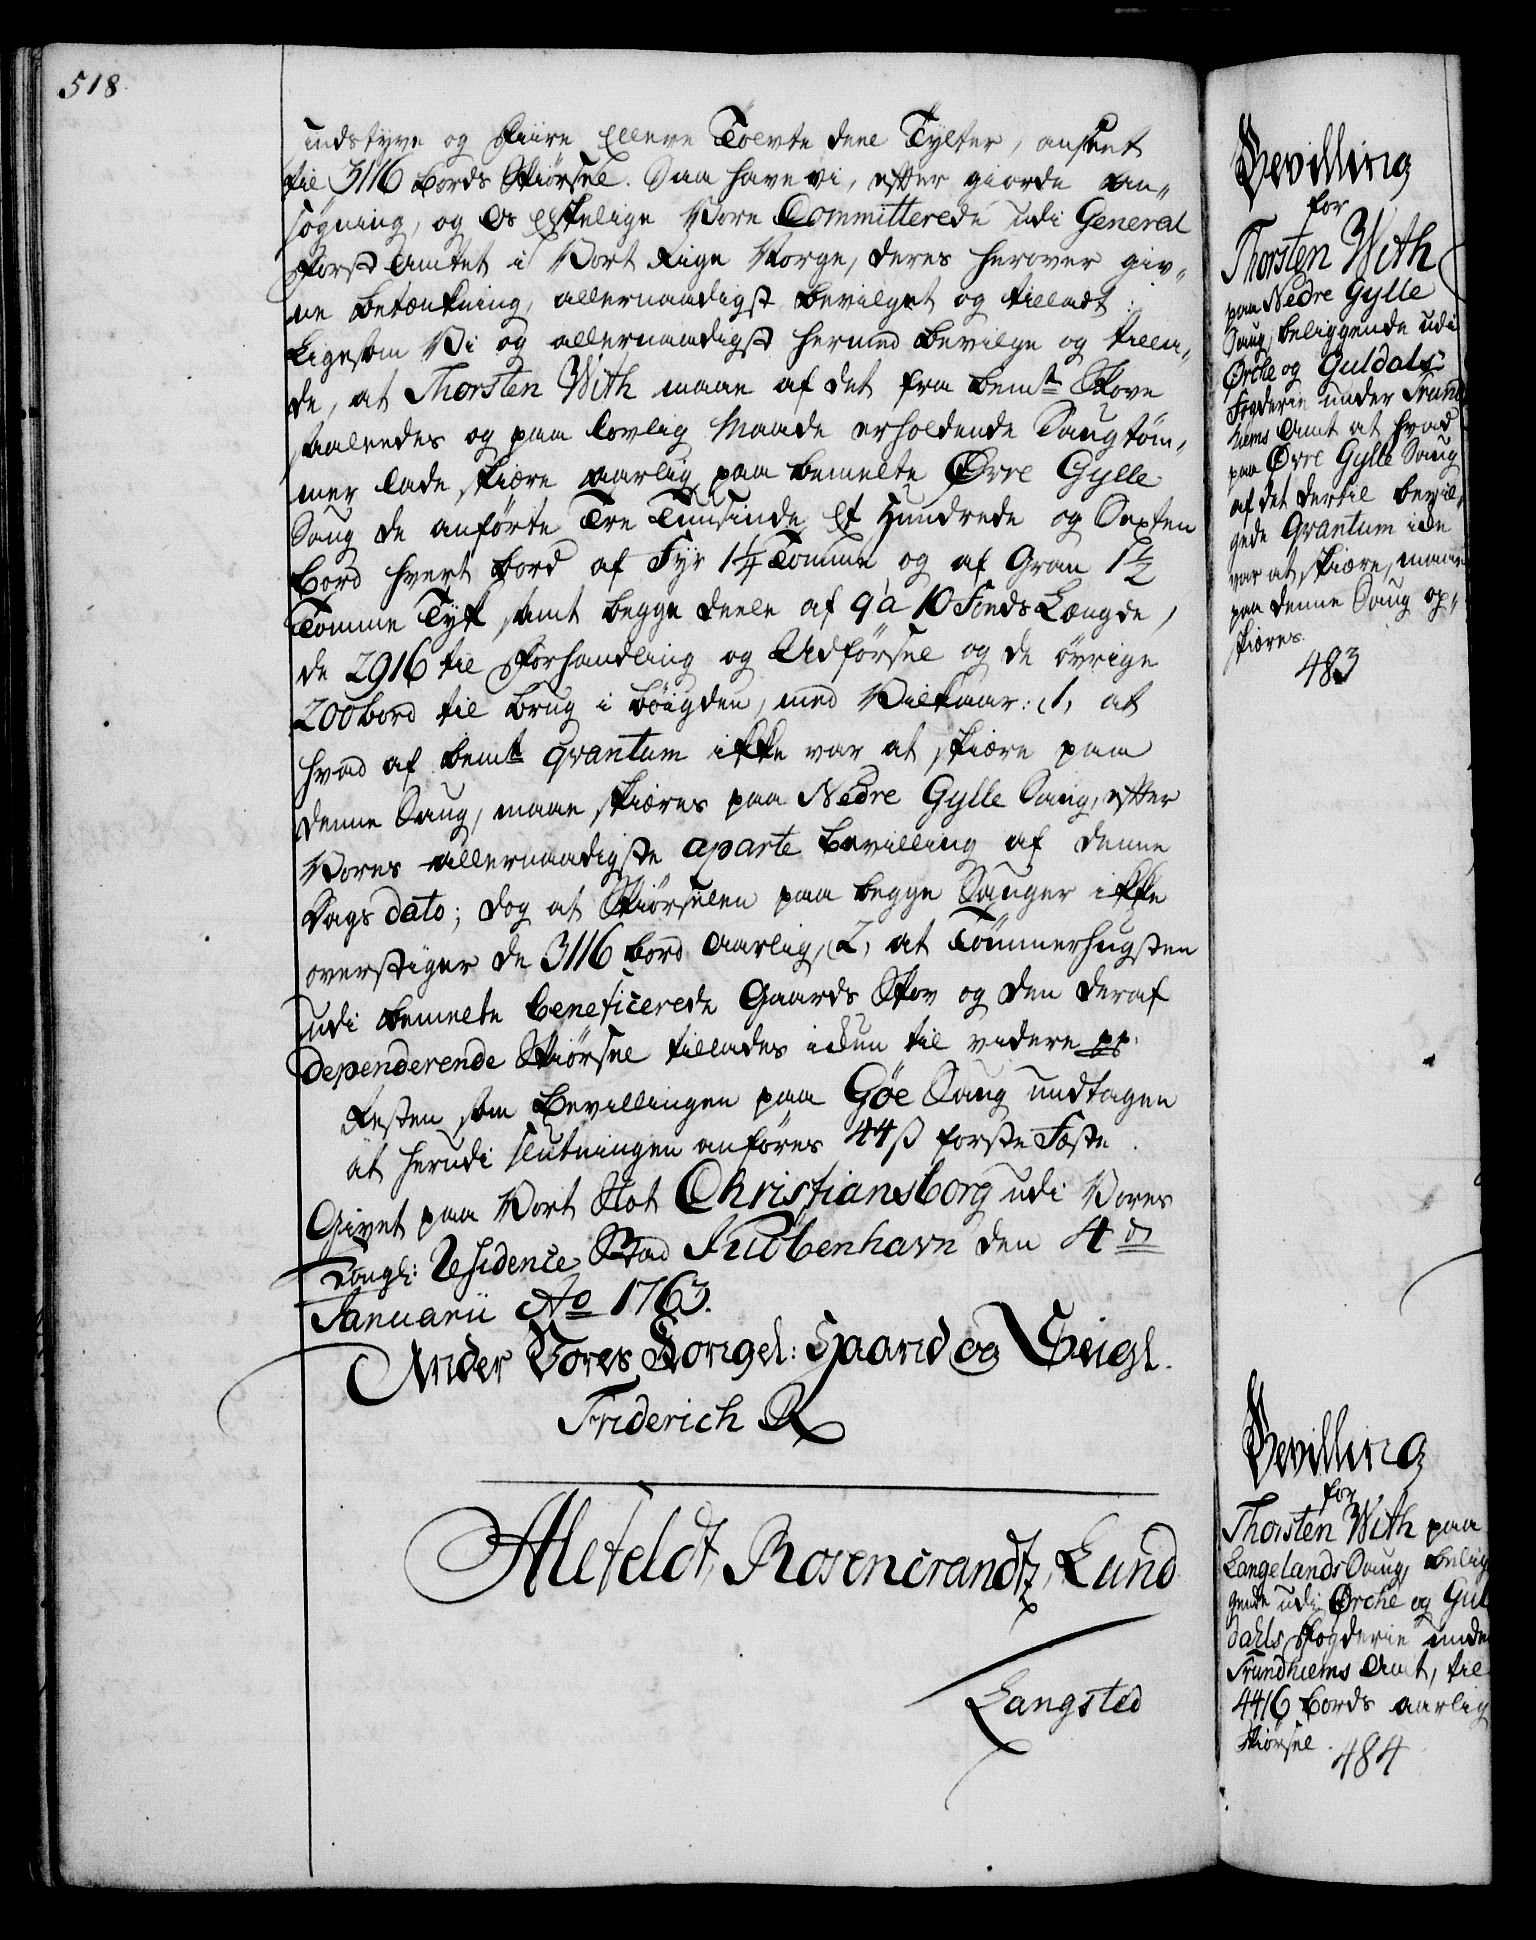 518.
indstyve og Fiire Elleve Tolvte deel Tylter, anseet
til 3116 Bords Skiørsel. Saa have vi, efter giorde An-
søgning, og Os Elskelige Vore Committerede udi General
Forst Amtet i Vort Rige Norge, deres herover giv-
ne Betænkning, allernaadigst bevilget og tilladt:
Ligesom Vi og allernaadigst hermed bevilge og tilla-
de, at Thorsten With maae af det fra bemte Skove
saaledes og paa lovlig Maade erholdende Saugtøm-
mer lade skiære aarlig paa bemelte Øvre Gylle
Saug de anførte Tre Tusinde Et Hundrede og Sexten
Bord hvert bord af Fyr 1 1/4 Tomme og af Gran 1 1/2
Tomme Tyk, samt begge deele af 9 à 10 Fods Længde,
de 2916 til Forhandling og Udførsel og de øvrige
200 bord til brug i Bøigden, med Vilkaar: 1, at
hvad af bemte Qvantum ikke var at skiære paa
denne Saug, maae skiæres paa Nedre Gylle Saug, efter
Vores allernaadigste aparte Bevilling af denne
Dags dato; dog at Skiørselen paa begge Sauger ikke
overstiger de 3116 bord Aarlig, 2, at Tømmerhugsten
udi bemelte beneficerede Gaards Skov og den deraf
dependerende Skiørsel tillades iden til videre pp.
Resten som Bevillingen paa Gøe Saug undtagen
at herudi slutningen anføres 44 ß første Fæste.
Givet paa Vort Slot Christiansborg udi Vores
Kongl: Residence Stad Kiöbenhavn den 4de
Januarii Ao 1763.
Under Vores Kongel: Haand og Seigl.
Friderich R
Alefeldt, Rosencrandtz, Lund
Langsted
Bevilling
for
Thorsten With
paa Nedre Gylle
Saug, beliggende udi
Ørche og Guldals
Fogderie under Trund
hiems Amt at hvad
paa Øvre Gylle Saug
af det dertil bevil-
gede Qvantum ikke
var at skiære, maae
paa denne Saug op-
skiæres.
483
Bevilling
for
Thorsten With paa
Langelands Saug, belig
gende udi Ørche og Gul
dahls Fogderie under
Trundhiems Amt, til
4416 Bords aarlig
Skiørsel.
484